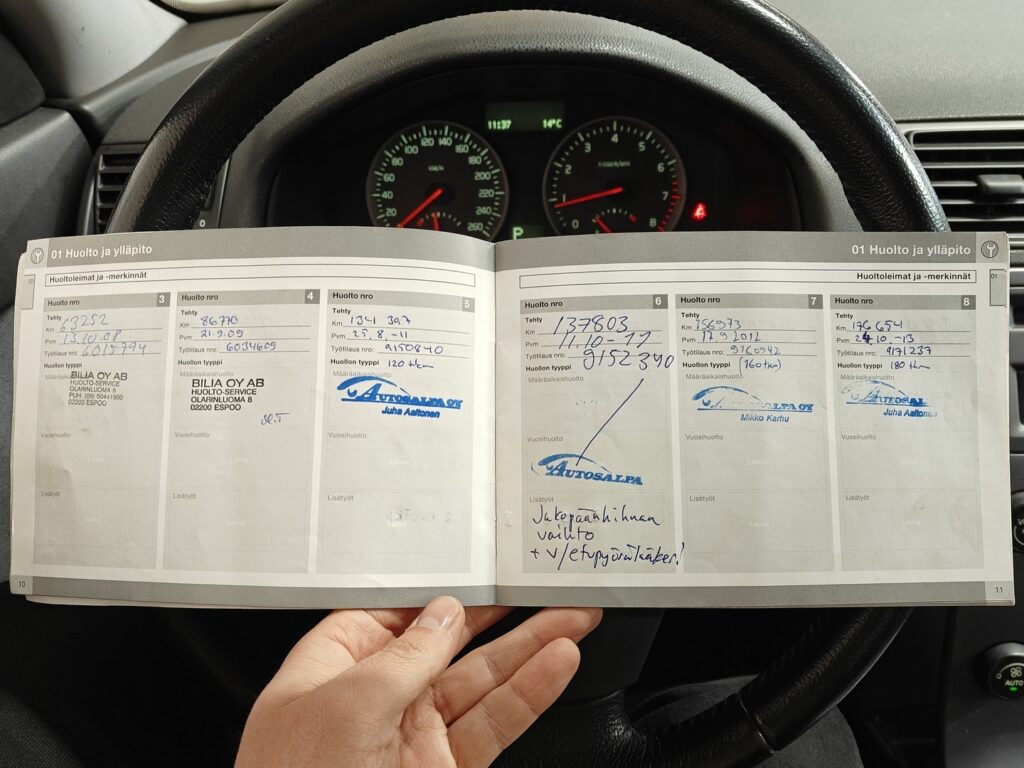 11:37 14°C
20
40
60
80
100
120
140
160
180
200
220
240
260
km/h
0
1
2
3
4
5
6
7
8
P
01 Huolto ja ylläpito
Huoltoleimat ja -merkinnät
01
Huolto nro 3
Tehty
Km 63252
Pvm 13.10.08
Työtilaus nro: 6015794
Huollon tyyppi
Määräaikaishuolto
BILIA OY AB
HUOLTO-SERVICE
OLARINLUOMA 8
PUH. (09) 80441800
02200 ESPOO
Vuosihuolto
Leima
Lisätyöt
Leima
Huolto nro 4
Tehty
Km 86770
Pvm 21.9.09
Työtilaus nro: 6034609
Huollon tyyppi
Määräaikaishuolto
BILIA OY AB
HUOLTO-SERVICE
OLARINLUOMA 8
02200 ESPOO
Vuosihuolto
Leima
Lisätyöt
Leima
Huolto nro 5
Tehty
Km 134 397
Pvm 25.8.-11
Työtilaus nro: 9150840
Huollon tyyppi 120 tkm
Määräaikaishuolto
AUTOSALPA OY
Juha Aaltonen
Vuosihuolto
Leima
Lisätyöt
10
01 Huolto ja ylläpito
Huoltoleimat ja -merkinnät
01
Huolto nro 6
Tehty
Km 137803
Pvm 11.10-11
Työtilaus nro: 9152390
Huollon tyyppi
Määräaikaishuolto
Vuosihuolto
AUTOSALPA
Lisätyöt
Jakopäänhihnan
vaihto
+ v/etupyöränlaakeri!
Huolto nro 7
Tehty
Km 156973
Pvm 17.9.2012
Työtilaus nro: 9160942
Huollon tyyppi (160 tkm)
Määräaikaishuolto
AUTOSALPA OY
Mikko Karhu
Vuosihuolto
Leima
Lisätyöt
Leima
Huolto nro 8
Tehty
Km 176 654
Pvm 24.10.-13
Työtilaus nro: 9171237
Huollon tyyppi 180 tkm
Määräaikaishuolto
AUTOSALPA
Juha Aaltonen
Vuosihuolto
Leima
Lisätyöt
Leima
11
AUTO